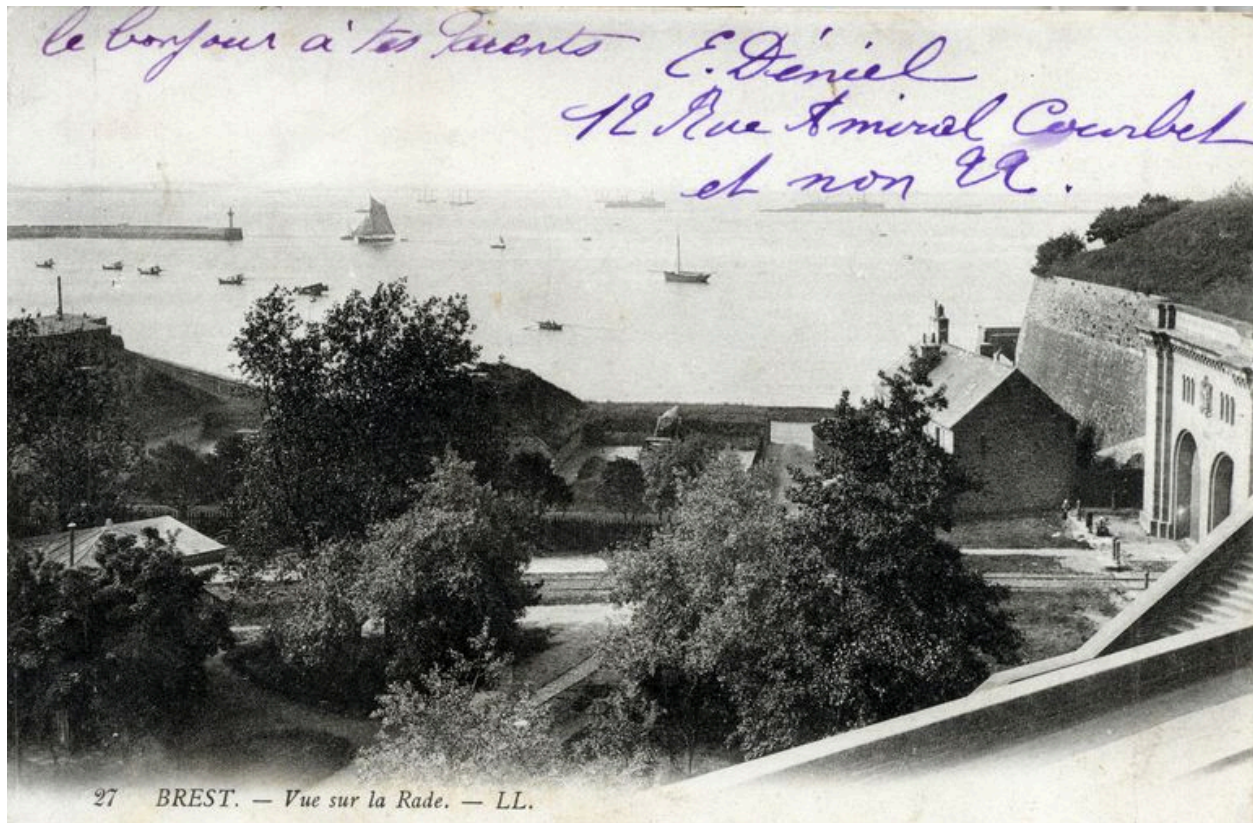 le bonjour à tes Parents
E. Déniel
12 Rue Amiral Courbet
et non 22.
27 BREST. — Vue sur la Rade. — LL.